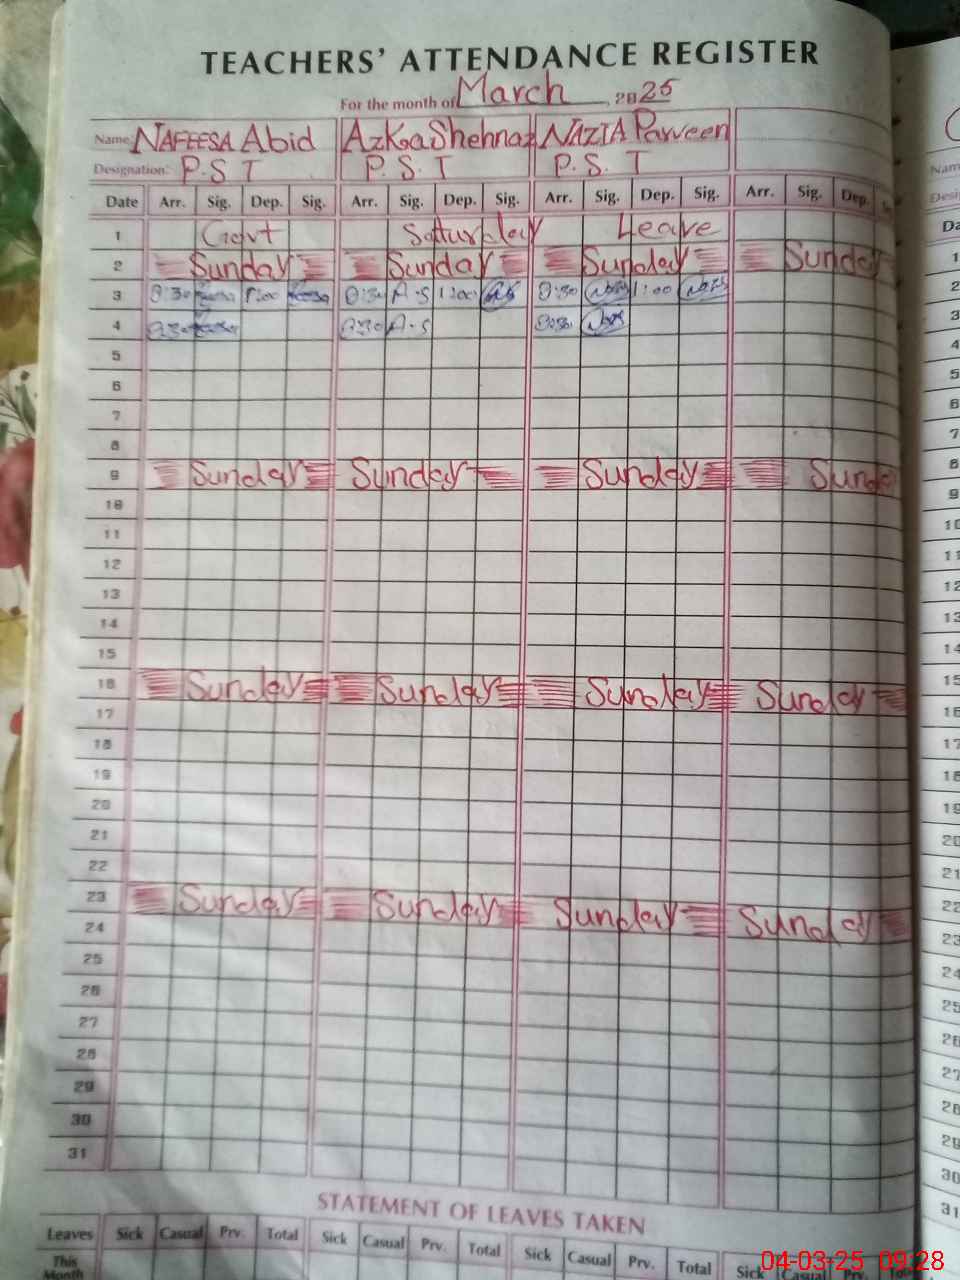 TEACHERS' ATTENDANCE REGISTER
For the month of March, 2025
Name: NAFEESA Abid AzKa Shehnaz NAZIA Parveen
Designation: P.S T P.S.T P.S.T
Date Arr. Sig. Dep. Sig. Arr. Sig. Dep. Sig. Arr. Sig. Dep. Sig. Arr. Sig. Dep.
1 Govt Saturday Leave
2 Sunday Sunday Sunday Sunday
3 8:30 1:00 8:30 A-S 1:00 8:30 1:00
4 8:30 8:30 A-S 8:30
5
6
7
8
9 Sunday Sunday Sunday Sunday
10
11
12
13
14
15
16 Sunday Sunday Sunday Sunday
17
18
19
20
21
22
23 Sunday Sunday Sunday Sunday
24
25
26
27
28
29
30
31
STATEMENT OF LEAVES TAKEN
Leaves Sick Casual Prv. Total Sick Casual Prv. Total Sick Casual Prv. Total Sick Casual Prv.
This
Month
04-03-25 09:28